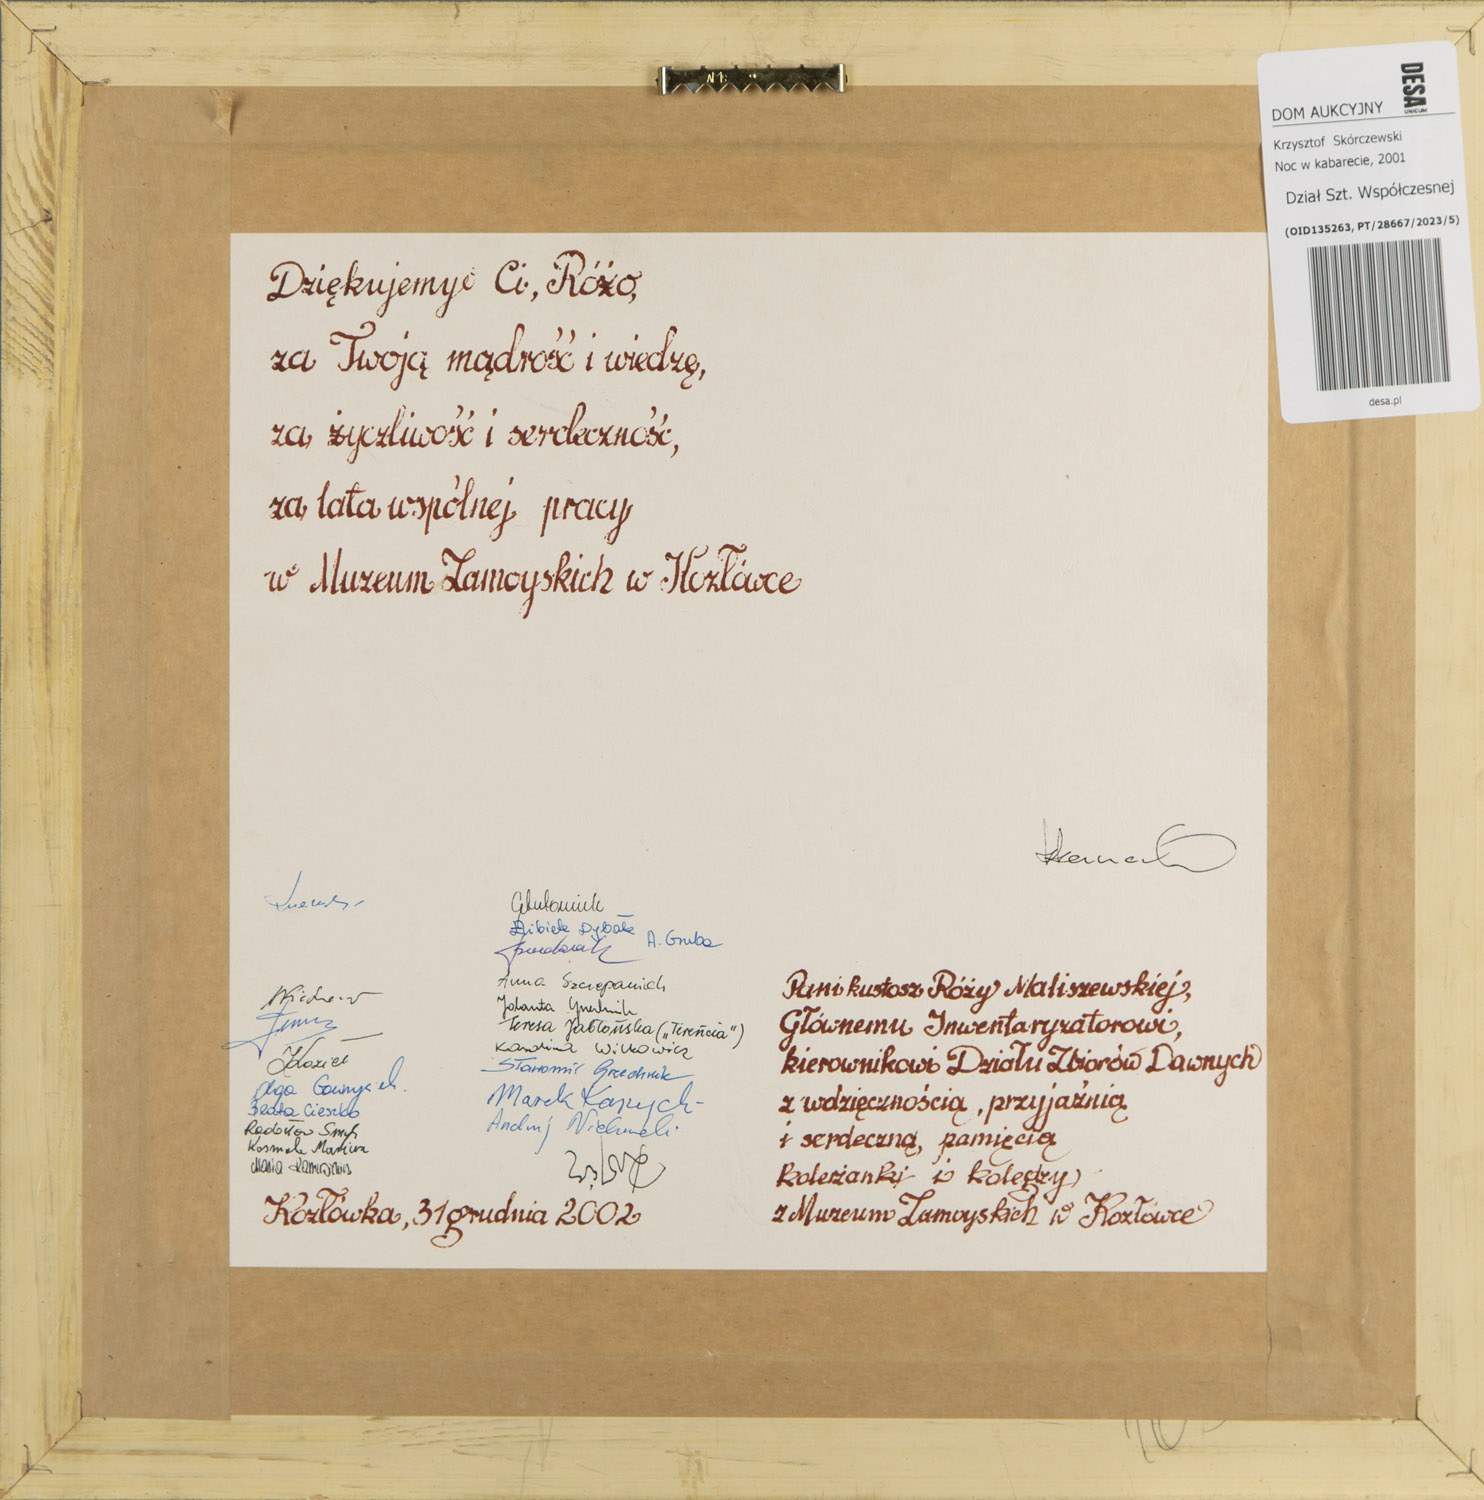 DESA
UNICUM
DOM AUKCYJNY
Krzysztof Skórczewski
Noc w kabarecie, 2001
Dział Szt. Współczesnej
(OID135263, PT/28667/2023/5)
desa.pl
Dziękujemy Ci, Różo,
za Twoją mądrość i wiedzę,
za życzliwość i serdeczność,
za lata wspólnej pracy
w Muzeum Zamoyskich w Kozłówce
A. Gruba
Anna Szczepaniak
Jolanta
Teresa Jabłońska („Tereńcia")
Karolina Witkowicz
Sławomir Grzechnik
Marek
Andrzej
Olga
Beata Cieszko
Radosław
Maria
Kozłówka, 31 grudnia 2002
Pani kustosz Róży Maliszewskiej,
Głównemu Inwentaryzatorowi,
kierownikowi Działu Zbiorów Dawnych
z wdzięcznością, przyjaźnią
i serdeczną pamięcią
koleżanki i koledzy
z Muzeum Zamoyskich w Kozłówce